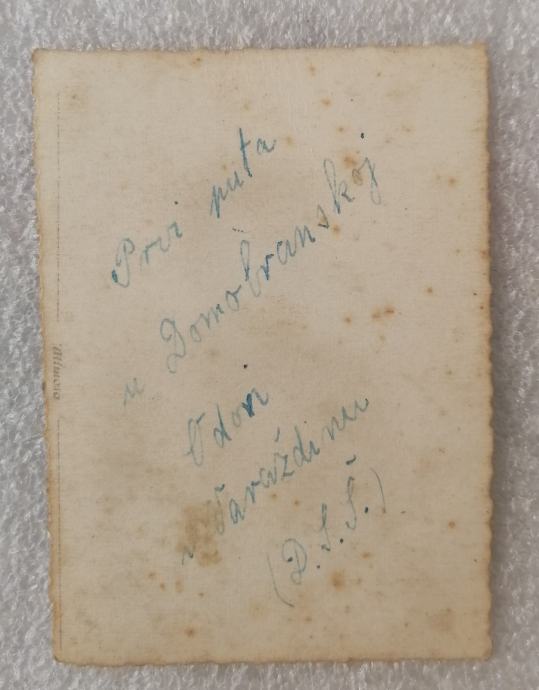 Prvi puta
u Domobranskoj
Odori
u Varaždinu
(D.S.Š.)
Mimosa